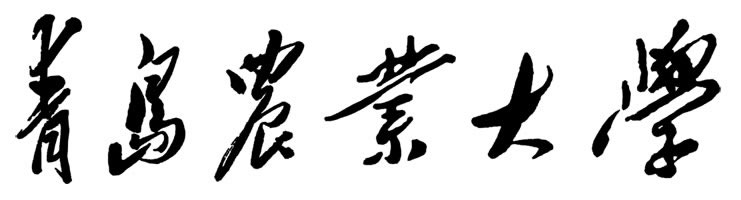 青島農業大學